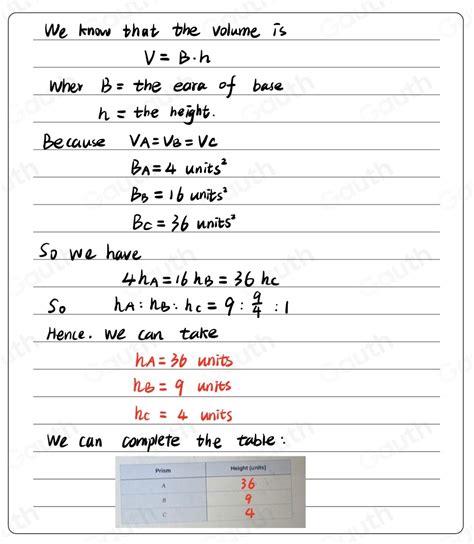 We know that the volume is
V = B·h
Wher B = the eara of base
h = the height.
Because VA = VB = VC
BA = 4 units²
BB = 16 units²
BC = 36 units²
So we have
4hA = 16hB = 36hc
So hA : hB : hc = 9 : 9/4 : 1
Hence. We can take
hA = 36 units
hB = 9 units
hc = 4 units
We can complete the table:
Prism Height (units)
A 36
B 9
C 4
Gauth